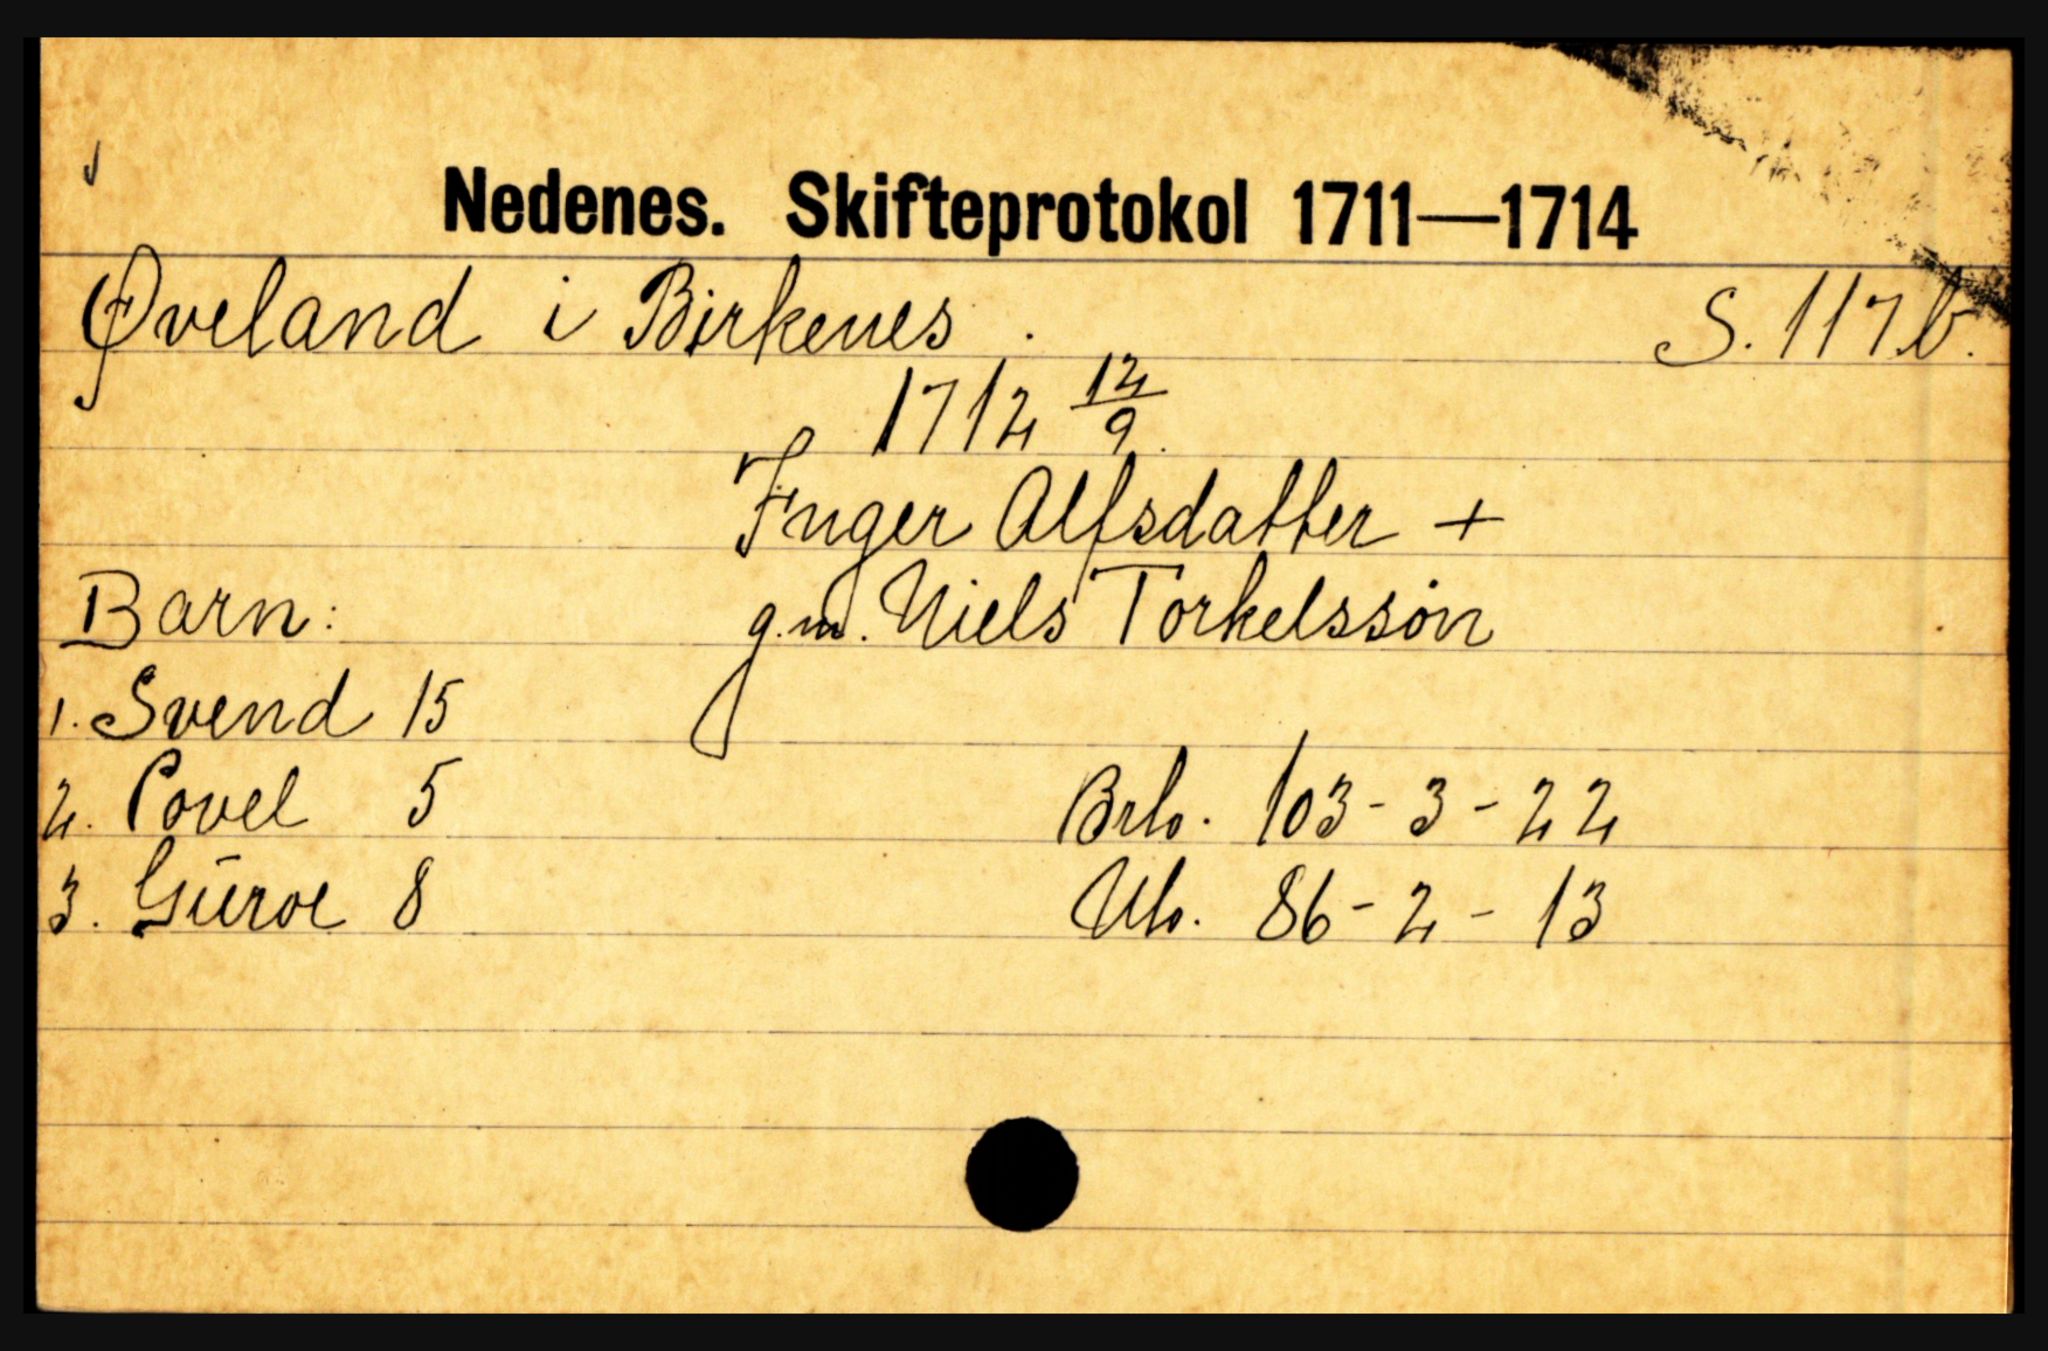 Nedenes. Skifteprotokol 1711—1714
Øveland i Birkenes. S. 117b.
1712 12/9.
Inger Alfsdatter +
Barn: g.m. Niels Torkelssøn
1. Svend 15
2. Povel 5 Brb. 103-3-22
3. Guroe 8 Ub. 86-2-13